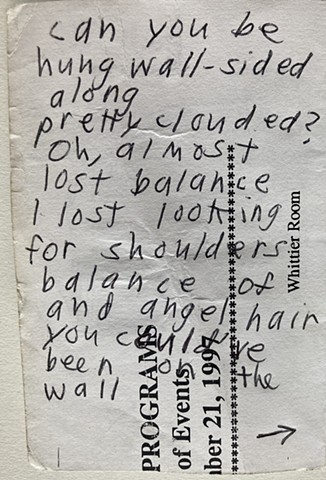 can you be
hung wall-sided
along
pretty clouded?
Oh, almost
lost balance
I lost looking
for shoulders
balance of
and angel hair
you could've
been on the
wall
PROGRAMS
of Events
ber 21, 1997
****************************
Whittier Room